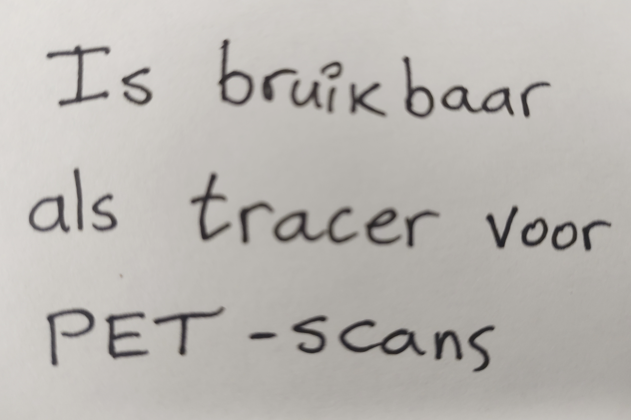 Is bruikbaar
als tracer voor
PET-scans